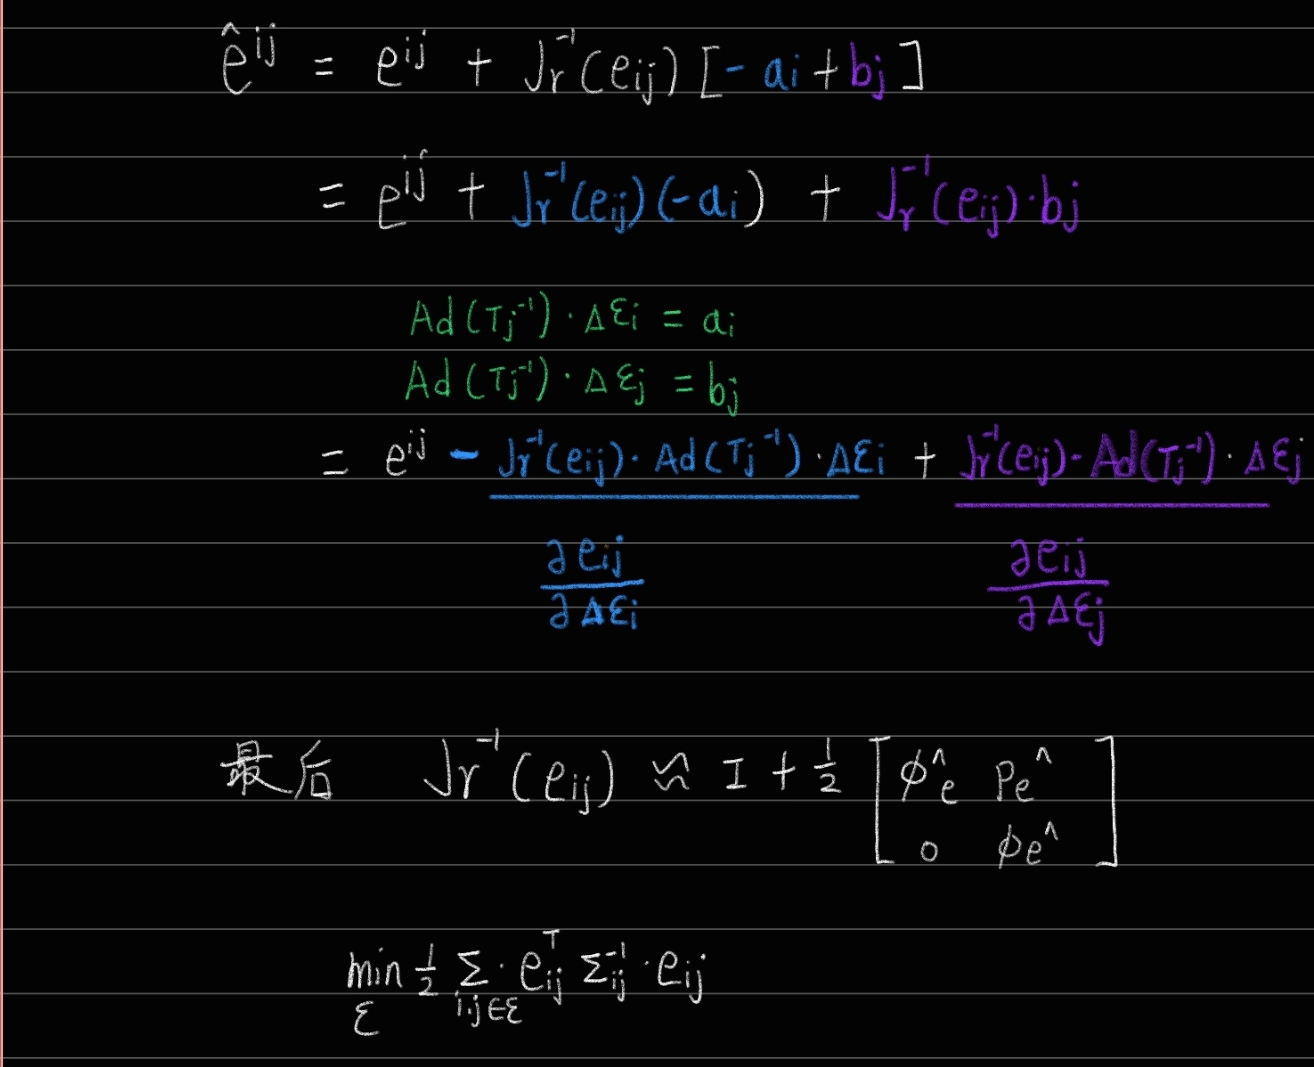 ê^{ij} = e^{ij} + J_r^{-1}(e_{ij}) [-a_i + b_j]
= e^{ij} + J_r^{-1}(e_{ij})(-a_i) + J_r^{-1}(e_{ij})·b_j
Ad(T_j^{-1})·Δε_i = a_i
Ad(T_j^{-1})·Δε_j = b_j
= e^{ij} - J_r^{-1}(e_{ij})·Ad(T_j^{-1})·Δε_i + J_r^{-1}(e_{ij})·Ad(T_j^{-1})·Δε_j
∂e_{ij}/∂Δε_i ∂e_{ij}/∂Δε_j
最后 J_r^{-1}(e_{ij}) ≈ I + 1/2 [φ_e^∧ ρ_e^∧
0 φ_e^∧]
min_ε 1/2 Σ_{i,j∈ε} · e_{ij}^T Σ_{ij}^{-1} · e_{ij}